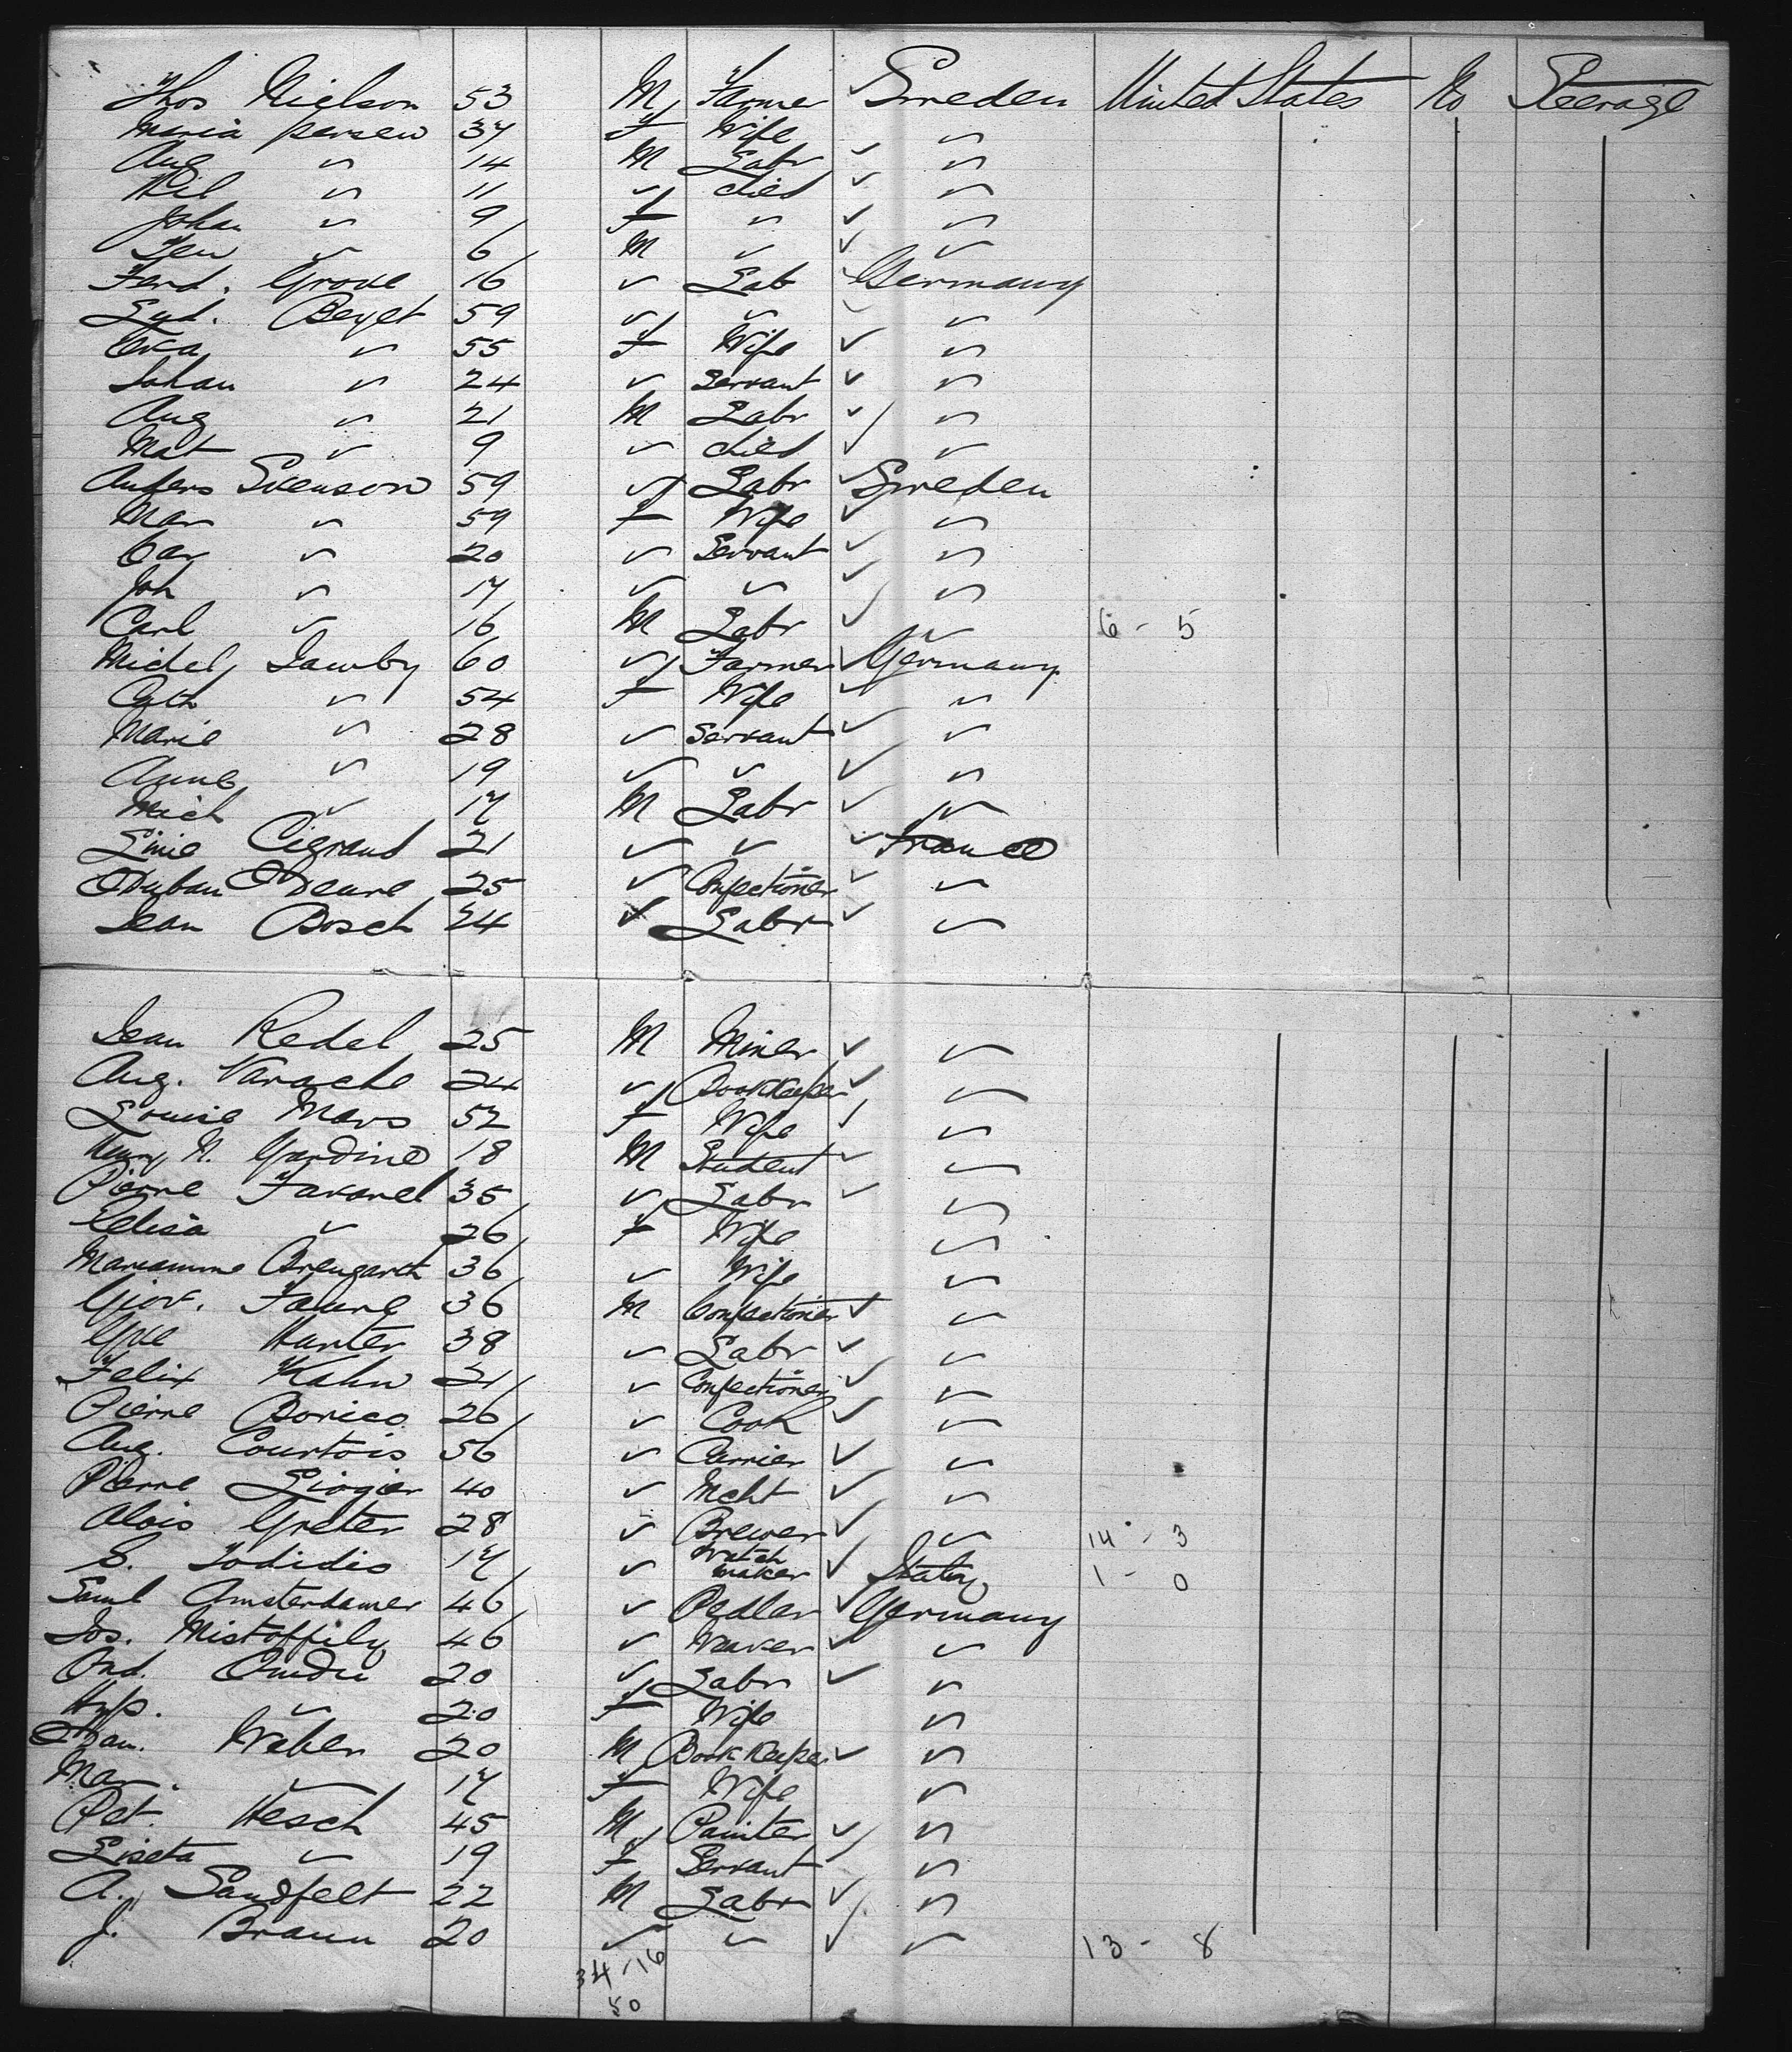 Thos Nielson 53 M Farmer ✓ Sweden United States No Steerage
Maria Persen 37 F Wife "
Aug " 14 M Labr ✓ "
Wil " 11 " child ✓ "
Johan " 9 F " ✓ "
" 6 M " ✓ "
Ferd. Grove 16 " Lab ✓ Germany
Lud. Beyet 59 " " ✓ "
Eva " 55 F Wife ✓ "
Johan " 24 " Servant ✓ "
Aug " 21 M Labr ✓ "
Mat " 9 " child ✓ "
Anders Svenson 59 " Labr ✓ Sweden
Mar " 59 F Wife ✓ "
Car " 20 " Servant ✓ "
Joh " 17 " " ✓ "
Carl " 16 M Labr ✓ " 6 - 5
Michel Lamby 60 " Farmer ✓ Germany
Cath " 54 F Wife ✓ "
Marie " 28 " Servant ✓ "
Anne " 19 " " ✓ "
Mich " 17 M Labr ✓ "
Cigrand 21 " " ✓ France
25 " Confectioner ✓ "
Jean Bosch 24 " Labr ✓ "
Jean Redel 25 M Miner ✓ "
Aug. Varache 24 " Bookkeeper ✓ "
Louise Mars 52 F Wife ✓ "
Henry M. Gardine 18 M Student ✓ "
Pierre Favarel 35 " Labr ✓ "
Elisa " 26 F Wife "
Marianne Brengarth 36 " Wife "
Giov. Faure 36 M Confectioner ✓ "
Hunter 38 " Labr ✓ "
Felix Kahn 21 " Confectioner ✓ "
Pierre Borico 26 " Cook ✓ "
Aug. Courtois 56 " Carrier ✓ "
Pierre Liogier 40 " Mcht ✓ "
Alois Greter 28 " Brewer ✓ " 14 - 3
S. Jodidio 17 " Watch maker ✓ Italy 1 - 0
Saml Amsterdamer 46 " Pedler ✓ Germany
Jos. Mistoffily 46 " Weaver ✓ "
And. 20 " Labr ✓ "
Hyp. " 20 F Wife "
Dam. Weber 20 M Bookkeeper ✓ "
Mar. " 17 F Wife "
Pet. Hesch 45 M Painter ✓ "
Liseta " 19 F Servant "
A. Sandfelt 22 M Labr ✓ "
J. Braun 20 " " ✓ " 13 - 8
34 - 16
50